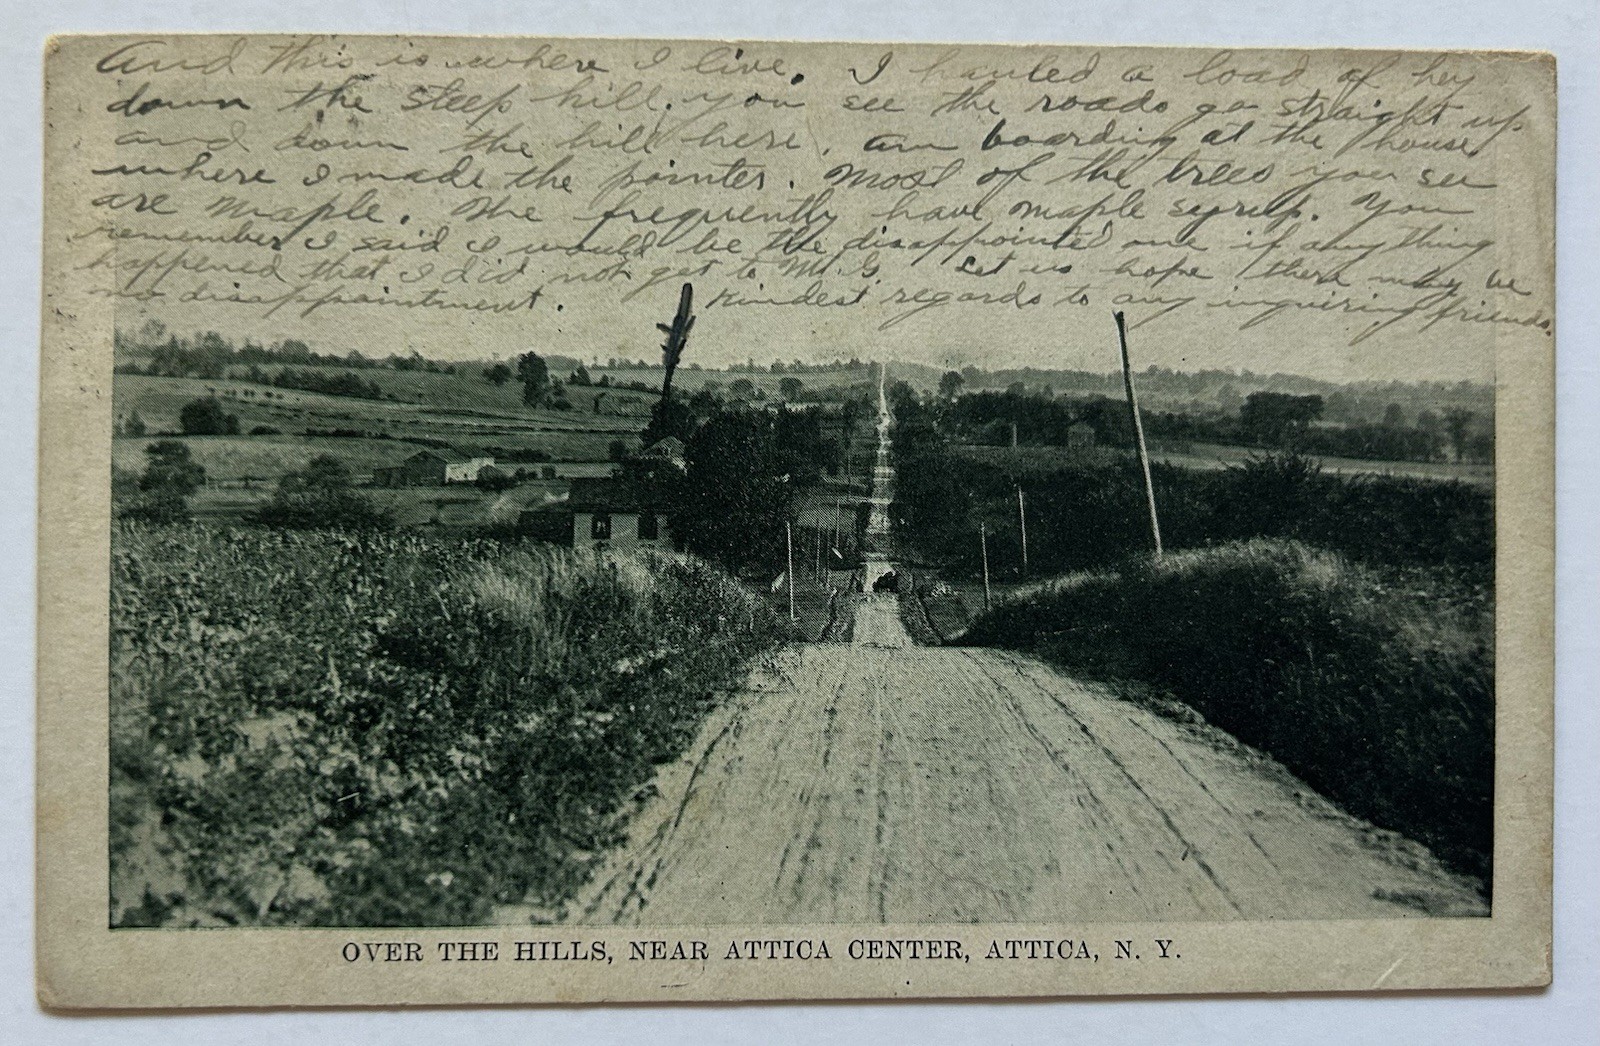 And this is where I live. I hauled a load of hey
down the steep hill. you see the roads go straight up
and down the hill here. am boarding at the house
where I made the pointer. Most of the trees you see
are maple. We frequently have maple syrup. You
remember I said I would be the disappointed one if anything
happened that I did not get to Mt. G. Let us hope there may be
no disappointment. Kindest regards to any inquiring friends.
OVER THE HILLS, NEAR ATTICA CENTER, ATTICA, N. Y.